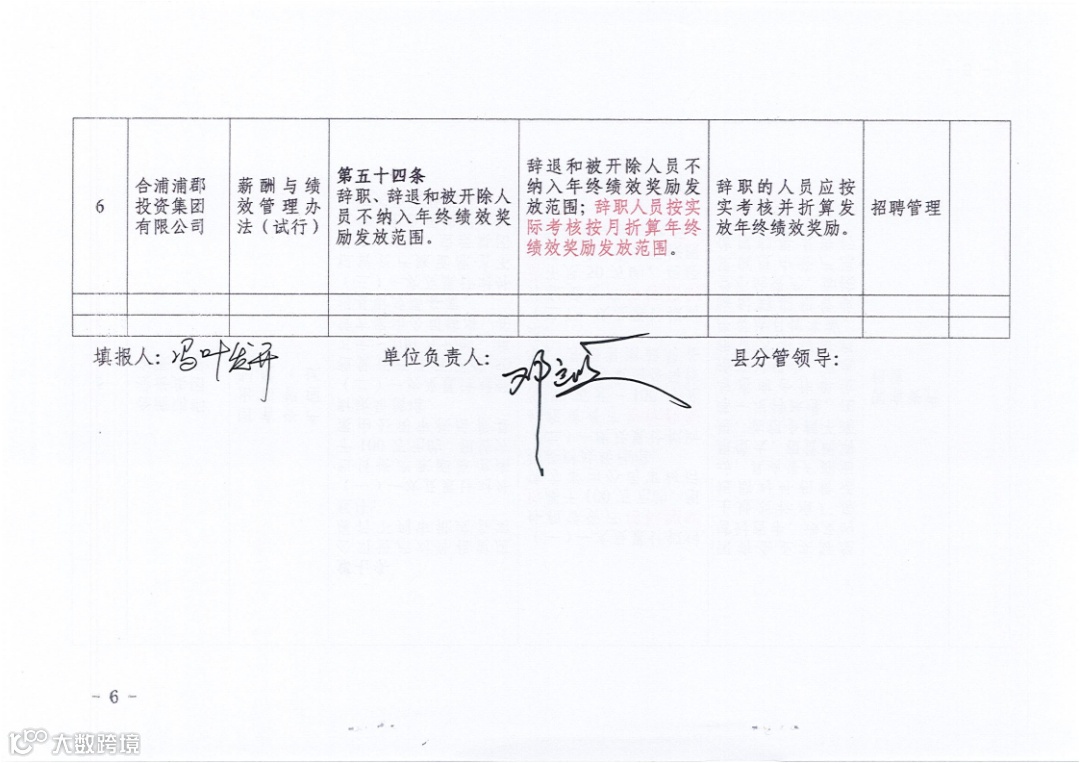 6
合浦浦郡
投资集团
有限公司
薪酬与绩
效管理办
法（试行）
第五十四条
辞职、辞退和被开除人
员不纳入年终绩效奖
励发放范围。
辞退和被开除人员不
纳入年终绩效奖励发
放范围；辞职人员按实
际考核按月折算年终
绩效奖励发放范围。
辞职的人员应按
实考核并折算发
放年终绩效奖励。
招聘管理
填报人：冯叶发开
单位负责人：
县分管领导：
- 6 -
大数跨境